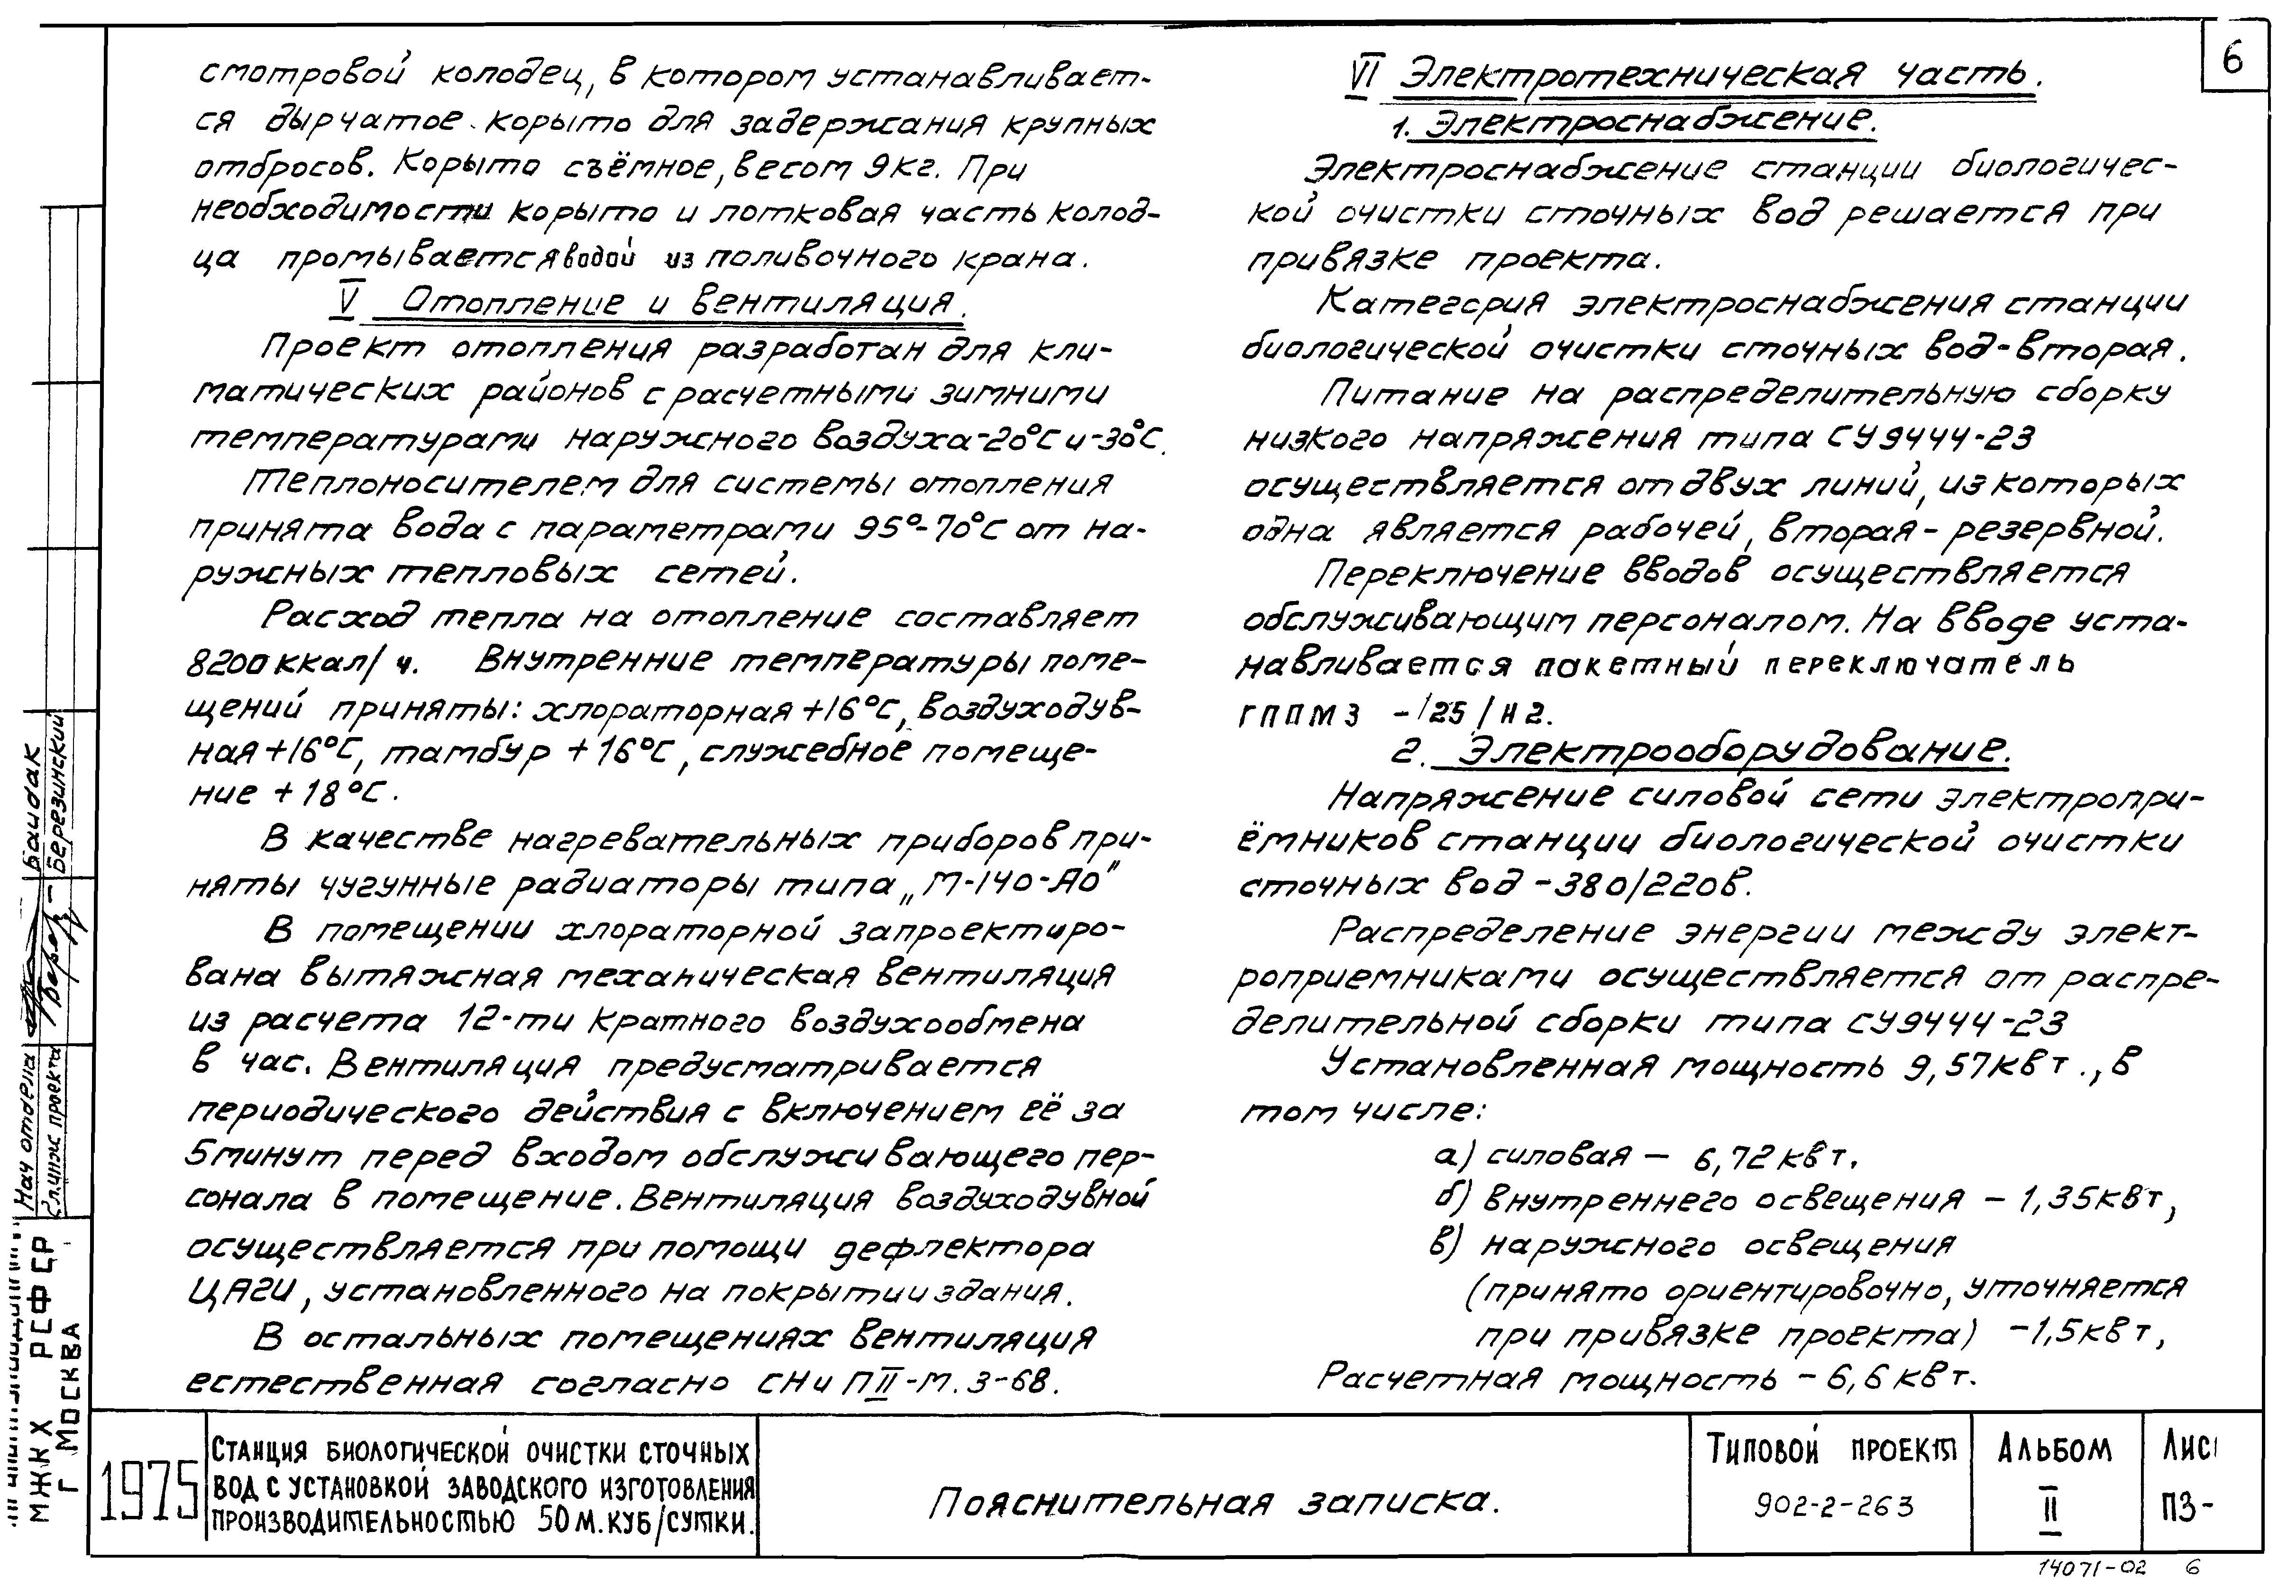 6
смотровой колодец, в котором устанавливает-
ся дырчатое корыто для задержания крупных
отбросов. Корыто съёмное, весом 9кг. При
необходимости корыто и лотковая часть колод-
ца промывается водой из поливочного крана.
V Отопление и вентиляция.
Проект отопления разработан для кли-
матических районов с расчетными зимними
температурами наружного воздуха -20°С и -30°С.
Теплоносителем для системы отопления
принята вода с параметрами 95°-70°С от на-
ружных тепловых сетей.
Расход тепла на отопление составляет
8200 ккал/ч. Внутренние температуры поме-
щений приняты: хлораторная +16°С, воздуходув-
ная +16°С, тамбур +16°С, служебное помеще-
ние +18°С.
В качестве нагревательных приборов при-
няты чугунные радиаторы типа „М-140-АО"
В помещении хлораторной запроектиро-
вана вытяжная механическая вентиляция
из расчета 12-ти кратного воздухообмена
в час. Вентиляция предусматривается
периодического действия с включением её за
5 минут перед входом обслуживающего пер-
сонала в помещение. Вентиляция воздуходувной
осуществляется при помощи дефлектора
ЦАГИ, установленного на покрытии здания.
В остальных помещениях вентиляция
естественная согласно СНиП II-М.3-68.
VI Электротехническая часть.
1. Электроснабжение.
Электроснабжение станции биологичес-
кой очистки сточных вод решается при
привязке проекта.
Категория электроснабжения станции
биологической очистки сточных вод-вторая.
Питание на распределительную сборку
низкого напряжения типа СУ9444-23
осуществляется от двух линий, из которых
одна является рабочей, вторая - резервной.
Переключение вводов осуществляется
обслуживающим персоналом. На вводе уста-
навливается пакетный переключатель
ГППМ3 -125/Н2.
2. Электрооборудование.
Напряжение силовой сети электропри-
ёмников станции биологической очистки
сточных вод -380/220в.
Распределение энергии между элект-
роприемниками осуществляется от распре-
делительной сборки типа СУ9444-23
Установленная мощность 9,57квт., в
том числе:
а) силовая - 6,72квт.
б) внутреннего освещения - 1,35квт,
в) наружного освещения
(принято ориентировочно, уточняется
при привязке проекта) -1,5квт,
Расчетная мощность - 6,6квт.
Нач отдела Баидак
Гл. инж проекта Березинский
МЖКХ РСФСР
Г МОСКВА
1975
Станция биологической очистки сточных
вод с установкой заводского изготовления
производительностью 50 м.куб/сутки.
Пояснительная записка.
Типовой проект
902-2-263
Альбом
II
Лист
ПЗ-
14071-02 6